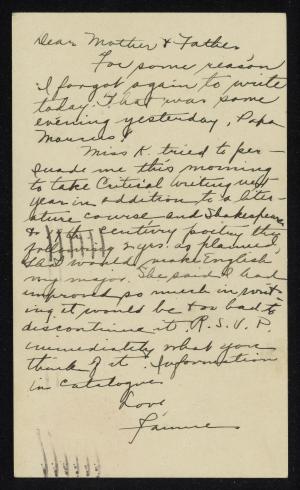 Dear Mother & Father,
For some reason
I forgot again to write
today. That was some
evening yesterday, Papa
Miss K. tried to per-
suade me this morning
to take Critical writing next
year in addition to a liter-
ature course and Shakespeare
& 19th century poetry the
following year as planned.
That would make English
my major. She said I had
improved so much in writ-
ing it would be too bad to
discontinue it. R.S.V.P.
immediately what you
think of it. Information
in catalogue.
Love,
Fannie